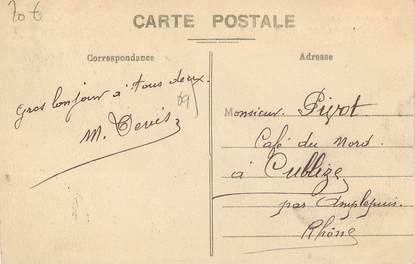 20 €
CARTE POSTALE
Correspondance
Adresse
Gros bonjour à tous deux.
M.
69
Monsieur Pizot
Café du Nord.
à Cublize
par Amplepuis.
Rhône